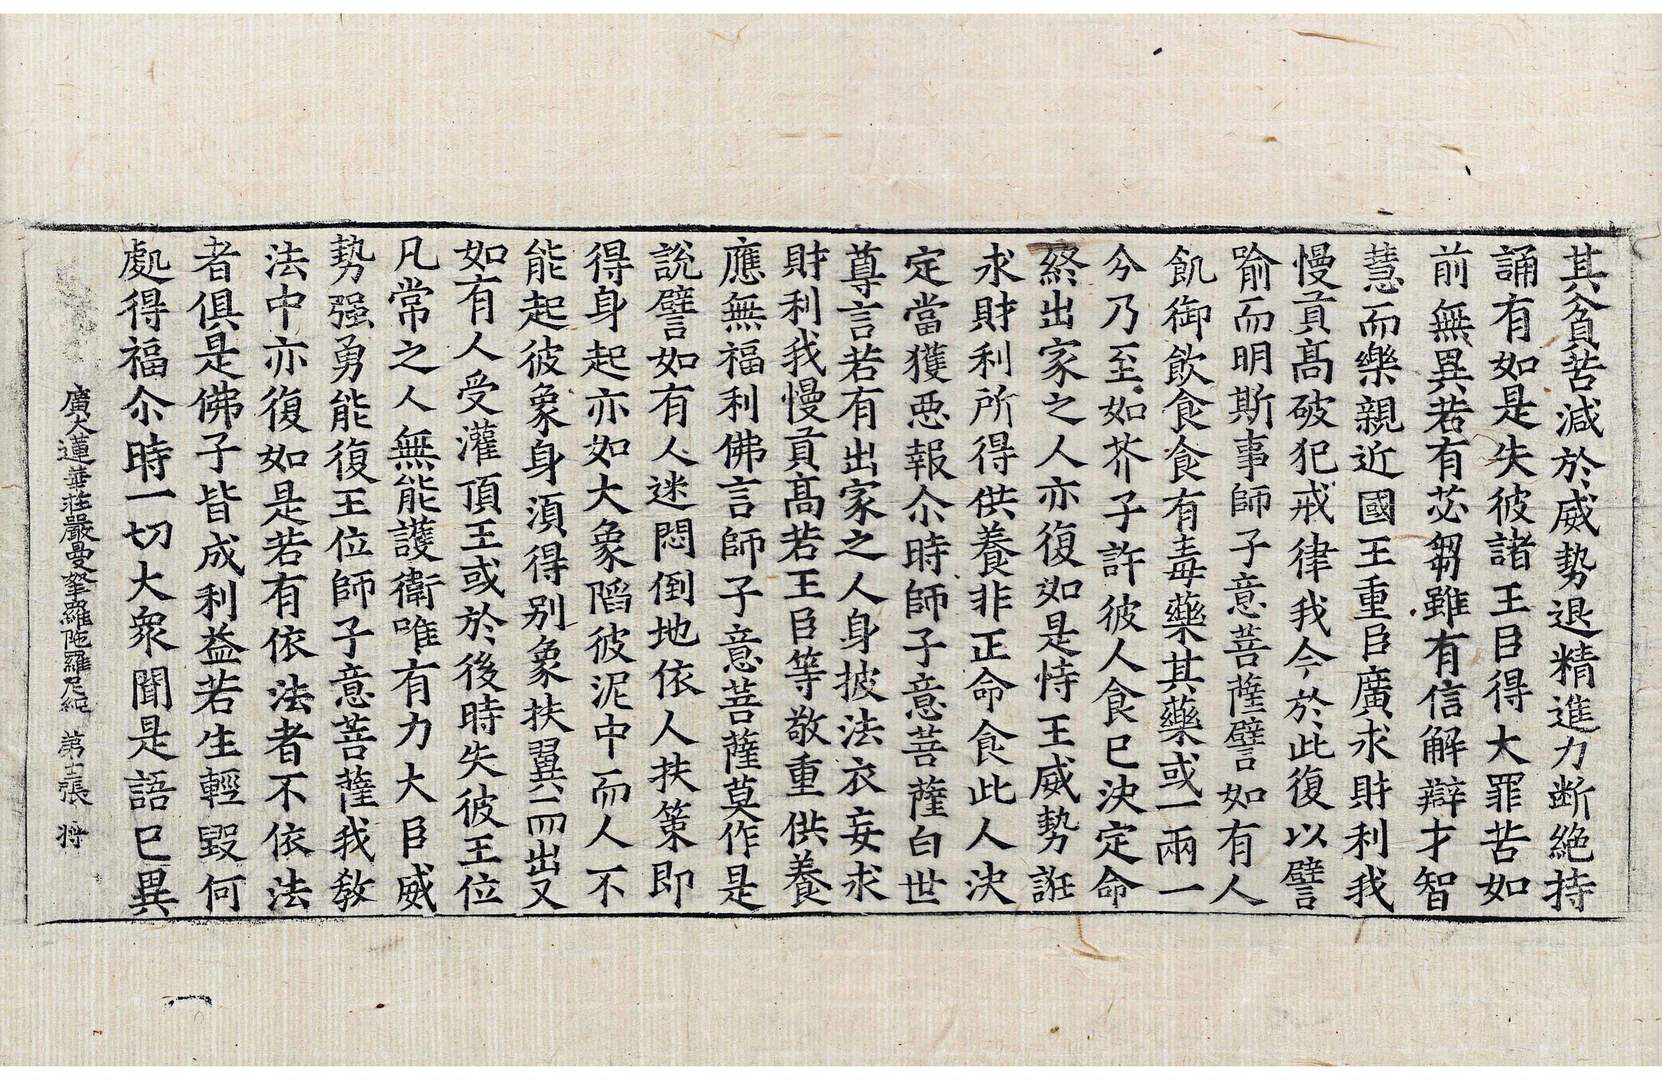 其貧苦減於威勢退精進力断絶持
誦有如是失彼諸王臣得大罪苦如
前無異若有苾芻雖有信解辯才智
慧而樂親近國王重臣廣求財利我
慢貢髙破犯戒律我今於此復以譬
喻而明斯事師子意菩薩譬如有人
飢御飲食食有毒藥其藥或一兩一
分乃至如芥子許彼人食已決定命
終出家之人亦復如是恃王威勢誑
求財利所得供養非正命食此人決
定當獲惡報尒時師子意菩薩白世
尊言若有出家之人身披法衣妄求
財利我慢貢髙若王臣等敬重供養
應無福利佛言師子意菩薩莫作是
說譬如有人迷悶倒地依人扶策即
得身起亦如大象陷彼泥中而人不
能起彼象身須得别象扶翼而出又
如有人受灌頂王或於後時失彼王位
凡常之人無能護衛唯有力大臣威
勢强勇能復王位師子意菩薩我教
法中亦復如是若有依法者不依法
者俱是佛子皆成利益若生輕毀何
處得福尒時一切大衆聞是語已異
廣大蓮華莊嚴曼拏羅陁羅尼經 第十二張 將